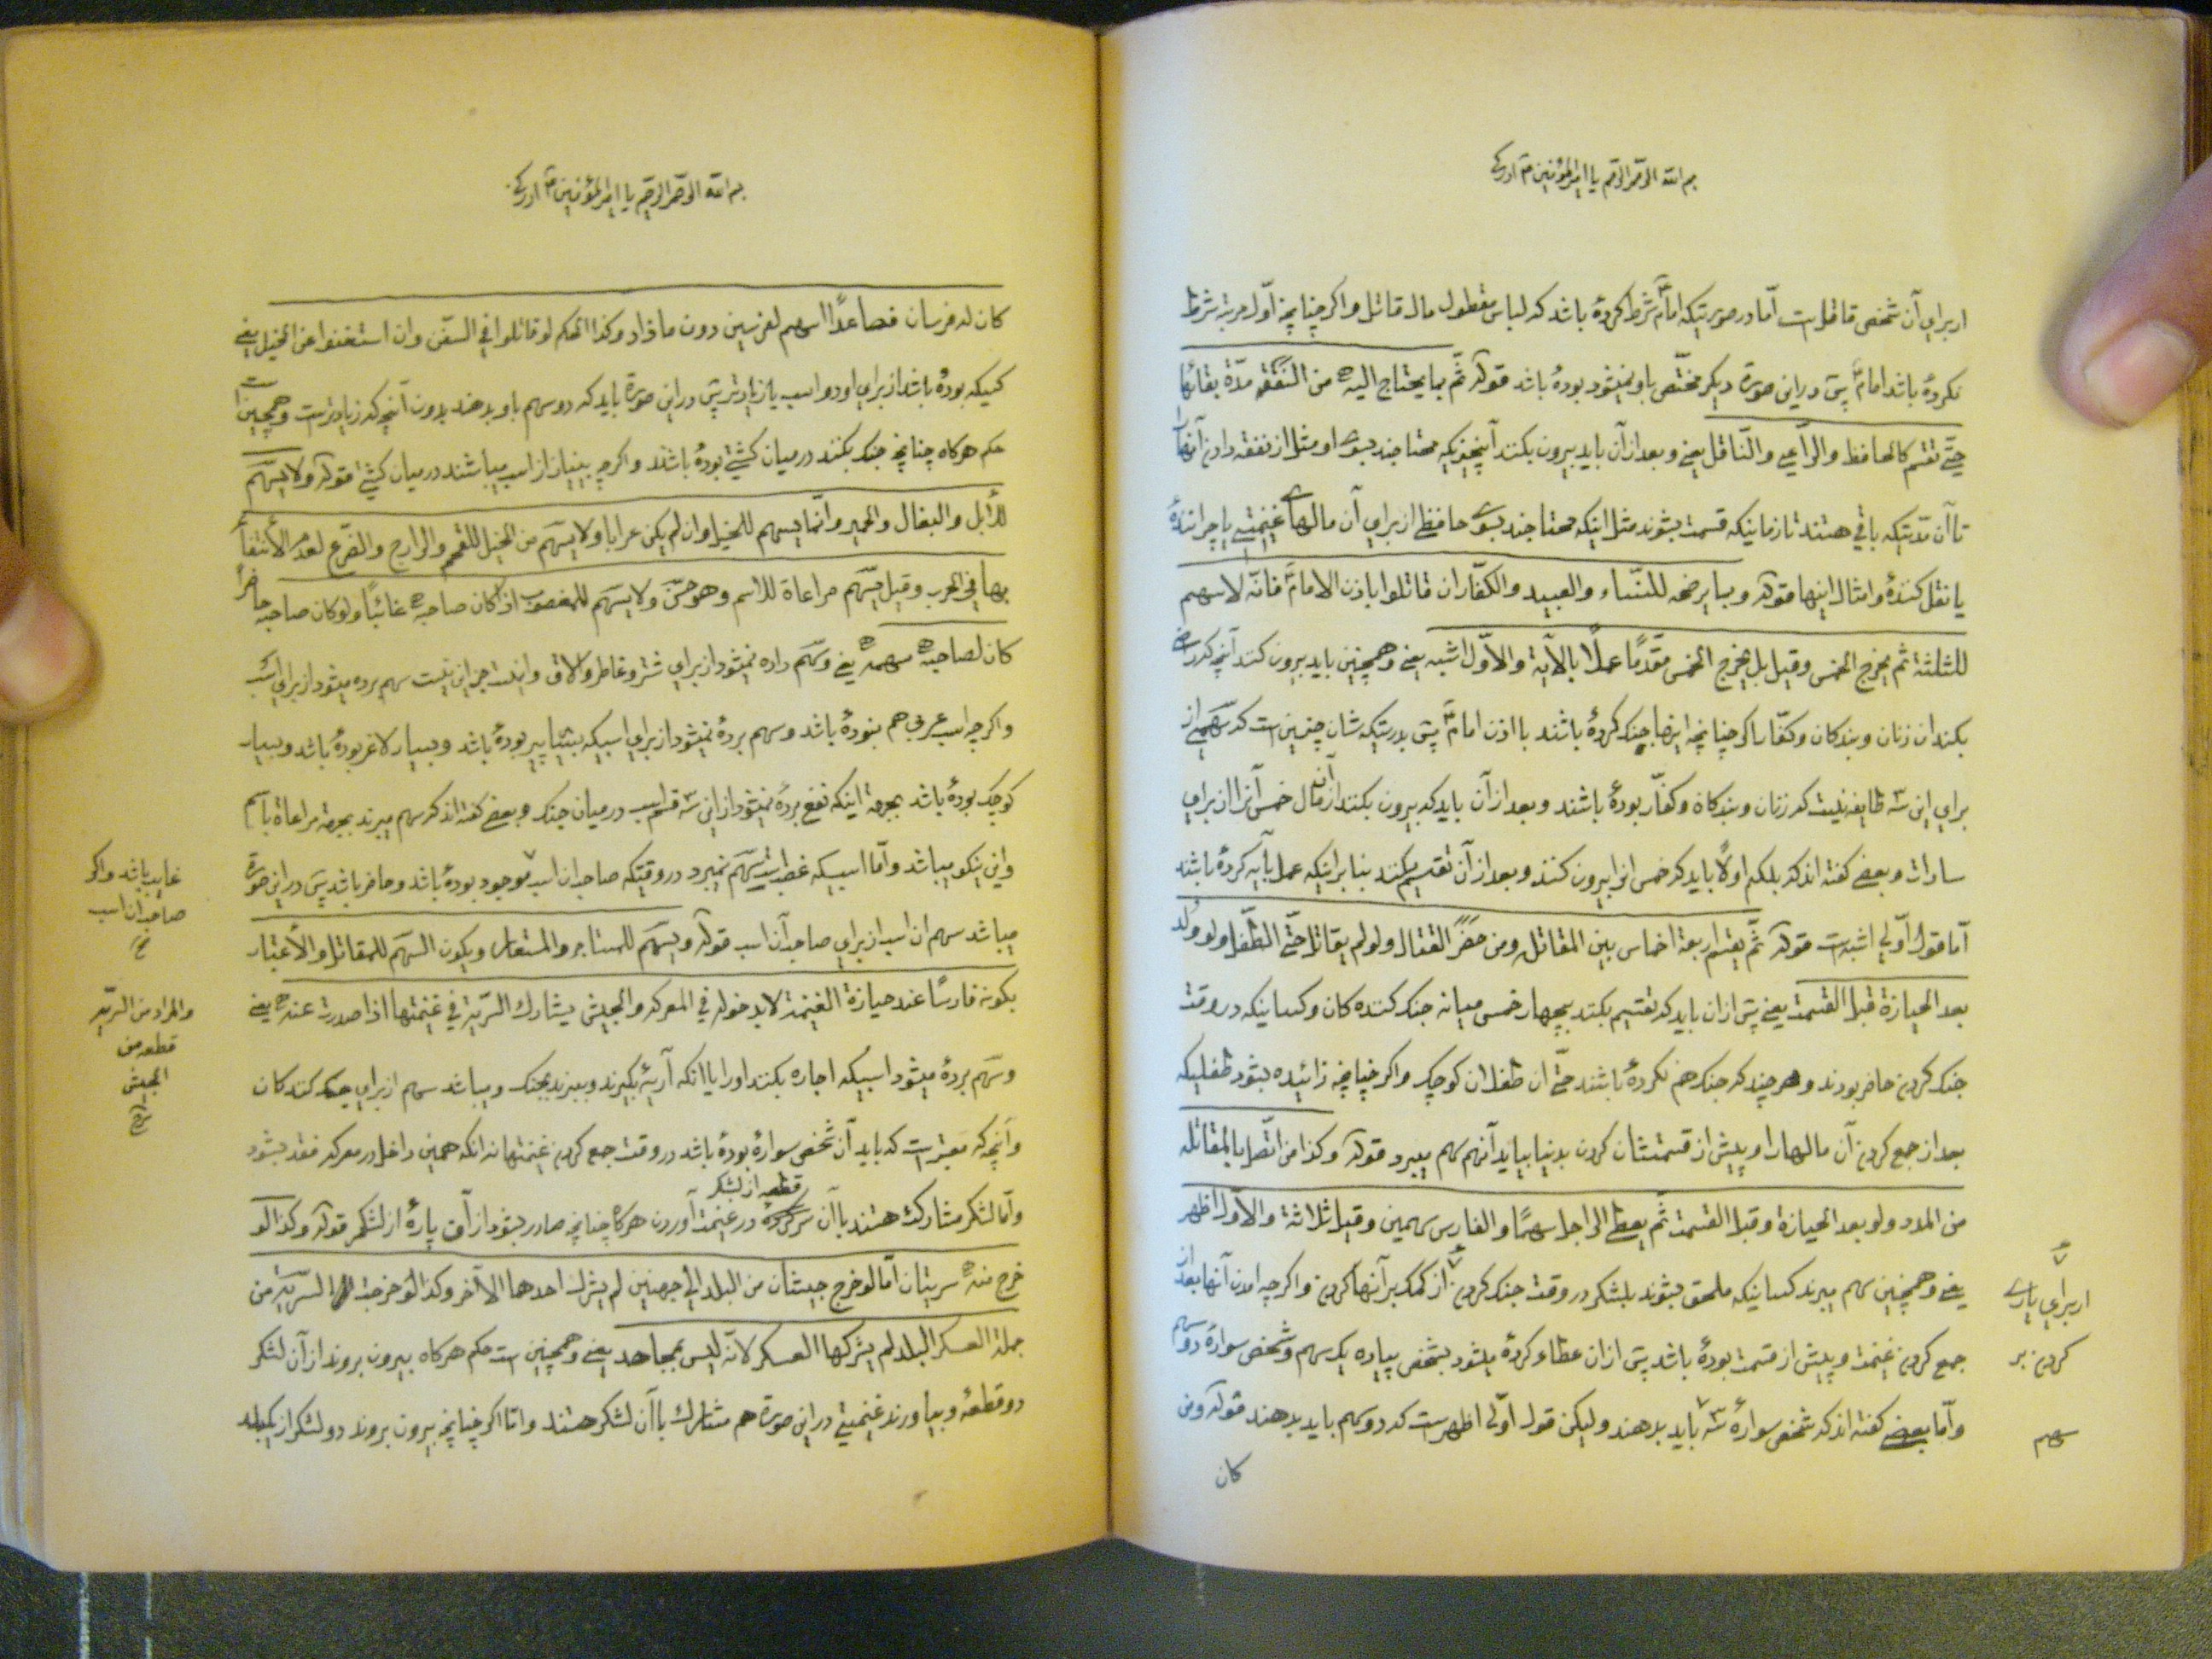 بسم الله الرحمن الرحیم یا امیر المؤمنین م ادرکنے
از برای آن شخص قاتل است امّا در صورتیکه امام شرط کردهٔ باشد که لباس مقطول مال قاتل و اگر چنانچه اوّل مرتبه شرط
نکردهٔ باشد امام پس در این صورة دیگر مختصّ باو نمیشود بودهٔ باشد قوله ثمّ بما یحتاج الیه من النفقه مدّة بقائها
حتّی تقسّم کالحافظ والرّاعے والنّاقل یعنے و بعد از آن باید بیرون بکنند آنچیزیکه محتاجند بسوے او مثل از نفقه دادن آنها را
تا آن مدّتیکه باقے هستند تا زمانیکه قسمت بشوند مثل اینکه محتاجند بسوے حافظے از برای آن مالهاے غنیمتے یا چرانندهٔ
یا نقل کنندهٔ و امثال اینها قوله و بما یرضخه للنّساء والعبید والکفّار ان قاتلوا باذن الامام فانّه لا سهم
للثلثة ثم یخرج الخمس و قیل بل یخرج الخمس مقدّمًا عملًا بالآیة والاوّل اشبه یعنے و همچنین باید بیرون کنند آنچه که رضخ
بکند از زنان و بندکان و کفّار اکر چنانچه اینها جنک کردهٔ باشند با اذن امام پس بدرستیکه شان چنین است که سهمے از
برای این سه طایفه نیست که زنان و بندکان و کفّار بودهٔ باشند و بعد از آن باید که بیرون بکنند از آن مال خمس آنرا از برای
سادات و بعضے کفته اند که بلکه اولًا باید که خمس انرا بیرون کنند و بعد از آن تقسیم بکنند بنابر اینکه عمل بآیه کردهٔ باشند
امّا قول اوّلے اشبه است قوله ثمّ یقسّم اربعة اخماس بین المقاتله و من حضر القتال و لو لم یقاتل حتّی الطّفل و لو ولد
بعد الحیازة قبل القسمة یعنے پس از ان باید که تقسیم بکند بچهار خمس میانه جنک کننده کان و کسانیکه در وقت
جنک کردن حاضر بودند و هر چند که جنک هم نکردهٔ باشند حتّی ان طفلان کوچک و اکر چنانچه زائیده بشود طفلیکه
بعد از جمع کردن آن مالها را و پیش از قسمتشان کردن بدنیا بیاید آنهم سهم میبرد قوله و کذا من اتّصل بالمقاتله
من المدد و لو بعد الحیازة و قبل القسمة ثمّ یعطے الراجل سهمًا والفارس سهمین و قیل ثلاثة والاوّل اظهر
یعنے و همچنین سهم میبرند کسانیکه ملحق بشوند بلشکر در وقت جنک کردن از کمک بر آنها کردن و اکرچه امدن آنها بعد از
از برای یارے
جمع کردن غنیمت و پیش از قسمت بودهٔ باشد پس از ان عطاء کردهٔ میشود بشخص پیاده یک سهم و شخص سوارهٔ دو سهم
کردن بر
و امّا بعضے کفته اند که شخص سوارهٔ سه باید بدهند ولیکن قول اوّلے اظهر است که دو سهم باید بدهند قوله و من
سهم
کان
بسم الله الرحمن الرحیم یا امیر المؤمنین م ادرکنے
کان له فرسان فصاعدًا اسهم لفرسین دون ما زاد و کذا الحکم لو قاتلوا فی السّفن و ان استغنوا عن الخیل یعنے
کسیکه بودهٔ باشد از برای او دو اسب یا زیادتر پس در این صورة باید که دو سهم باو بدهند بدون آنچه که زیادتر است و همچنین است
حکم هرکاه چنانچه جنک بکنند در میان کشتے بودهٔ باشند و اکرچه بینیاز از اسب میباشند در میان کشتے قوله و لا یسهم
للأبل والبغال والحمیر و انّما یسهم للخیل و ان لم یکن عرابا و لا یسهم من الخیل للقحم والرازح والضرع لعدم الأنتفاع
بها فی الحرب و قیل یسهم مراعاة للاسم و هو حسن و لا یسهم للمغصوب اذا کان صاحبه غائبًا و لو کان صاحبه حاضرًا
کان لصاحبه سهمه یعنے و سهم داده نمیشود از برای شتر و غاطر و الاق و اینست جز این نیست سهم برده میشود از برای اسب
و اکرچه اسب عربے هم نبودهٔ باشد و سهم بردهٔ نمیشود از برای اسبیکه بسیار پیر بودهٔ باشد و بسیار لاغر بودهٔ باشد و بسیار
کوچک بودهٔ باشد بجهة اینکه نفع بردهٔ نمیشود از این سه قسم اسب در میان جنک و بعضے کفته اند که سهم میبرند بجهة مراعاة باسم
و این نیکو میباشد و امّا اسبیکه غصب است سهم نمیبرد در وقتیکه صاحب ان اسب موجود بودهٔ باشد و حاضر باشد پس در این صورة
غایب باشد و اکر
صاحب ان اسب
میباشد سهم ان اسب از برای صاحب آن اسب قوله و یسهم للمستاجر والمستعار و یکون السهم للمقاتل والأعتبار
بکونه فارسًا عند حیازة الغنیمة لا بدخوله فی المعرکه والجیش یشارک السّریّة فی غنیمتها اذا صدرت عنه یعنے
والمراد من السّریّه
قطعه من
الجیش
و سهم بردهٔ میشود اسبیکه اجاره بکنند او را یا انکه آریهٔ بکیرند و ببرند بجنک و میباشد سهم از برای جنک کنندکان
و آنچه که معتبر است که باید آن شخص سوارهٔ بودهٔ باشد در وقت جمع کردن غنیمتها نه انکه همین داخل در معرکه فقد بشود
و امّا لشکر مشارکت هستند با آن قطعه از لشکر در غنیمت آوردن هرکاه چنانچه صادر بشود از آن پارهٔ از لشکر قوله و کذا لو
خرج منه سریتان امّا لو خرج جیشان من البلد الی جهتین لم یشرک احدهما الآخر و کذا لو خرجت السّریّة من
جملة العسکر البلد لم یشرکها العسکر لانّه لیس بمجاهد یعنے و همچنین است حکم هرکاه بیرون بروند از آن لشکر
دو قطعهٔ و بیاورند غنیمتے در این صورة هم مشارک با آن لشکر هستند و امّا اکر چنانچه بیرون بروند دو لشکر از یکبلد